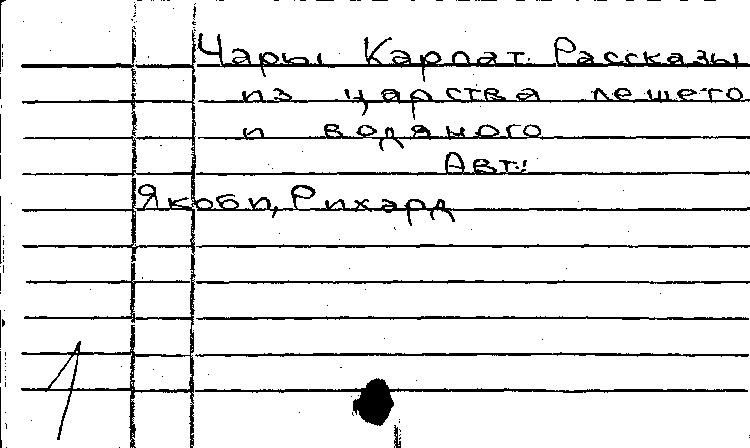 Чары Карпат. Рассказы
из царства лешего
и водяного
Авт.:
Якоби, Рихард
1